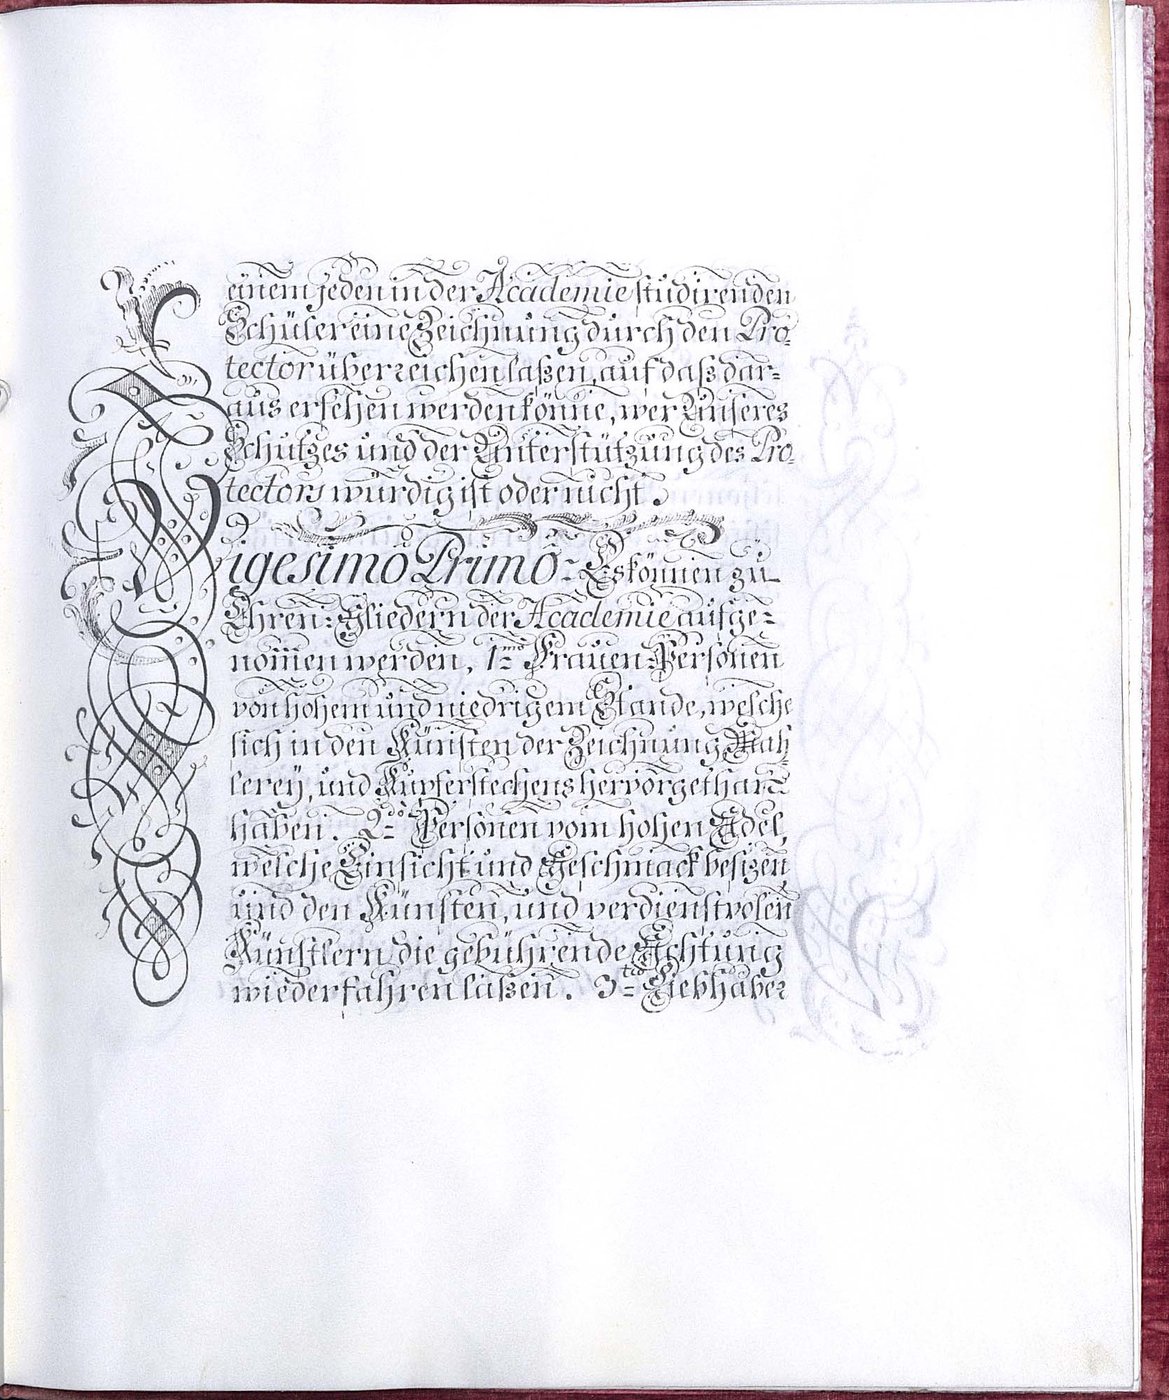 einem jeden in der Academie studirenden
Schüler eine Zeichnung durch den Pro-
tector überreichen laßen, auf daß dar-
aus ersehen werden könne, wer Unseres
Schutzes und der Unterstützung des Pro-
tectors würdig ist oder nicht.
Vigesimo Primo - Es können zu
Ehren-Gliedern der Academie aufge-
nom̅en werden, 1mo Frauen-Personen
von hohem und niedrigem Stande, welche
sich in den Künsten der Zeichnung Mah-
lerey, und Kupferstechens hervorgethan
haben. 2do Personen vom hohen Adel,
welche Einsicht und Geschmack besizen
und den Künsten, und verdienstvolen
Künstlern die gebührende Achtung
wiederfahren laßen. 3tio Liebhaber